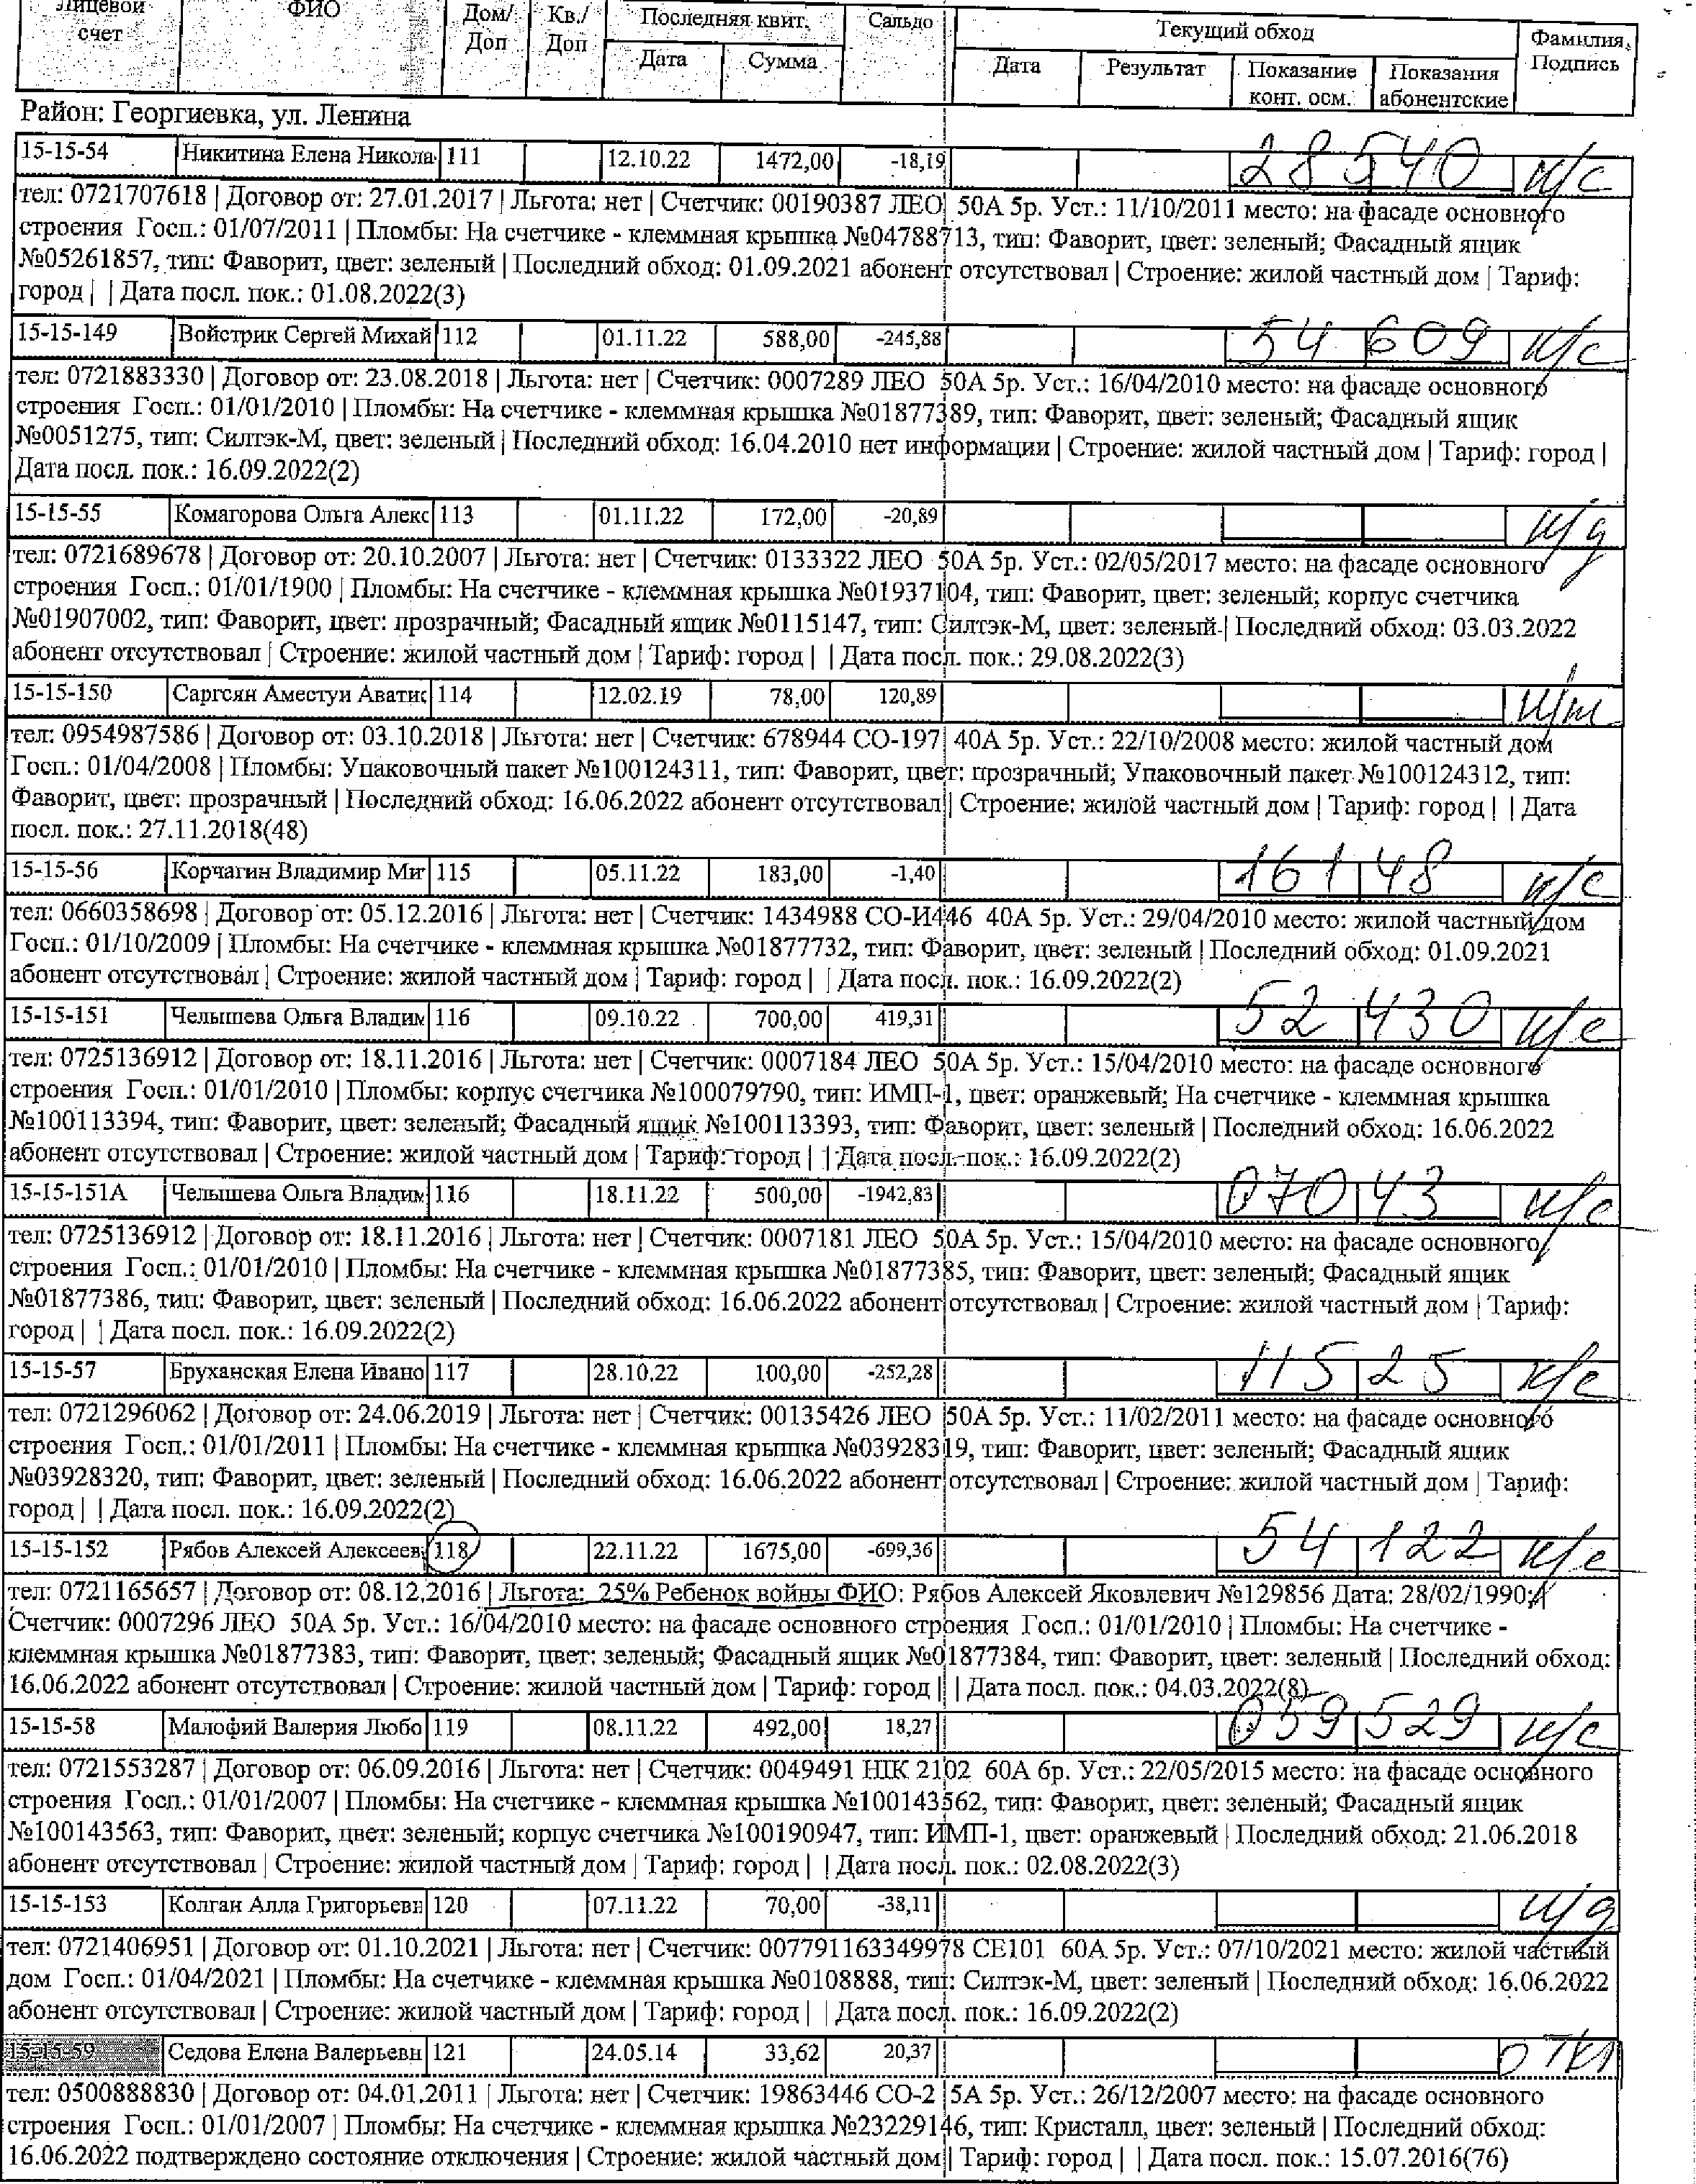 Лицевой счет ФИО Дом/Доп Кв./Доп Последняя квит. Дата Сумма Сальдо Текущий обход Дата Результат Показание конт. осм. Показания абонентские Фамилия, Подпись
Район: Георгиевка, ул. Ленина
15-15-54 Никитина Елена Никола 111 12.10.22 1472,00 -18,19 28540 н/с
тел: 0721707618 | Договор от: 27.01.2017 | Льгота: нет | Счетчик: 00190387 ЛЕО 50А 5р. Уст.: 11/10/2011 место: на фасаде основного
строения Госп.: 01/07/2011 | Пломбы: На счетчике - клеммная крышка №04788713, тип: Фаворит, цвет: зеленый; Фасадный ящик
№05261857, тип: Фаворит, цвет: зеленый | Последний обход: 01.09.2021 абонент отсутствовал | Строение: жилой частный дом | Тариф:
город | | Дата посл. пок.: 01.08.2022(3)
15-15-149 Войстрик Сергей Михай 112 01.11.22 588,00 -245,88 54609 н/с
тел: 0721883330 | Договор от: 23.08.2018 | Льгота: нет | Счетчик: 0007289 ЛЕО 50А 5р. Уст.: 16/04/2010 место: на фасаде основного
строения Госп.: 01/01/2010 | Пломбы: На счетчике - клеммная крышка №01877389, тип: Фаворит, цвет: зеленый; Фасадный ящик
№0051275, тип: Силтэк-М, цвет: зеленый | Последний обход: 16.04.2010 нет информации | Строение: жилой частный дом | Тариф: город |
Дата посл. пок.: 16.09.2022(2)
15-15-55 Комагорова Ольга Алекс 113 01.11.22 172,00 -20,89 н/д
тел: 0721689678 | Договор от: 20.10.2007 | Льгота: нет | Счетчик: 0133322 ЛЕО 50А 5р. Уст.: 02/05/2017 место: на фасаде основного
строения Госп.: 01/01/1900 | Пломбы: На счетчике - клеммная крышка №01937104, тип: Фаворит, цвет: зеленый; корпус счетчика
№01907002, тип: Фаворит, цвет: прозрачный; Фасадный ящик №0115147, тип: Силтэк-М, цвет: зеленый | Последний обход: 03.03.2022
абонент отсутствовал | Строение: жилой частный дом | Тариф: город | | Дата посл. пок.: 29.08.2022(3)
15-15-150 Саргсян Аместуи Аватис 114 12.02.19 78,00 120,89
тел: 0954987586 | Договор от: 03.10.2018 | Льгота: нет | Счетчик: 678944 СО-197 40А 5р. Уст.: 22/10/2008 место: жилой частный дом
Госп.: 01/04/2008 | Пломбы: Упаковочный пакет №100124311, тип: Фаворит, цвет: прозрачный; Упаковочный пакет №100124312, тип:
Фаворит, цвет: прозрачный | Последний обход: 16.06.2022 абонент отсутствовал | Строение: жилой частный дом | Тариф: город | | Дата
посл. пок.: 27.11.2018(48)
15-15-56 Корчагин Владимир Мит 115 05.11.22 183,00 -1,40 16148 н/с
тел: 0660358698 | Договор от: 05.12.2016 | Льгота: нет | Счетчик: 1434988 СО-И446 40А 5р. Уст.: 29/04/2010 место: жилой частный дом
Госп.: 01/10/2009 | Пломбы: На счетчике - клеммная крышка №01877732, тип: Фаворит, цвет: зеленый | Последний обход: 01.09.2021
абонент отсутствовал | Строение: жилой частный дом | Тариф: город | | Дата посл. пок.: 16.09.2022(2)
15-15-151 Челышева Ольга Владим 116 09.10.22 700,00 419,31 52430 н/с
тел: 0725136912 | Договор от: 18.11.2016 | Льгота: нет | Счетчик: 0007184 ЛЕО 50А 5р. Уст.: 15/04/2010 место: на фасаде основного
строения Госп.: 01/01/2010 | Пломбы: корпус счетчика №100079790, тип: ИМП-1, цвет: оранжевый; На счетчике - клеммная крышка
№100113394, тип: Фаворит, цвет: зеленый; Фасадный ящик №100113393, тип: Фаворит, цвет: зеленый | Последний обход: 16.06.2022
абонент отсутствовал | Строение: жилой частный дом | Тариф: город | | Дата посл. пок.: 16.09.2022(2)
15-15-151А Челышева Ольга Владим 116 18.11.22 500,00 -1942,83 07043 н/с
тел: 0725136912 | Договор от: 18.11.2016 | Льгота: нет | Счетчик: 0007181 ЛЕО 50А 5р. Уст.: 15/04/2010 место: на фасаде основного
строения Госп.: 01/01/2010 | Пломбы: На счетчике - клеммная крышка №01877385, тип: Фаворит, цвет: зеленый; Фасадный ящик
№01877386, тип: Фаворит, цвет: зеленый | Последний обход: 16.06.2022 абонент отсутствовал | Строение: жилой частный дом | Тариф:
город | | Дата посл. пок.: 16.09.2022(2)
15-15-57 Бруханская Елена Ивано 117 28.10.22 100,00 -252,28 11525 н/с
тел: 0721296062 | Договор от: 24.06.2019 | Льгота: нет | Счетчик: 00135426 ЛЕО 50А 5р. Уст.: 11/02/2011 место: на фасаде основного
строения Госп.: 01/01/2011 | Пломбы: На счетчике - клеммная крышка №03928319, тип: Фаворит, цвет: зеленый; Фасадный ящик
№03928320, тип: Фаворит, цвет: зеленый | Последний обход: 16.06.2022 абонент отсутствовал | Строение: жилой частный дом | Тариф:
город | | Дата посл. пок.: 16.09.2022(2)
15-15-152 Рябов Алексей Алексеев 118 22.11.22 1675,00 -699,36 54122 н/с
тел: 0721165657 | Договор от: 08.12.2016 | Льгота: 25% Ребенок войны ФИО: Рябов Алексей Яковлевич №129856 Дата: 28/02/1990 |
Счетчик: 0007296 ЛЕО 50А 5р. Уст.: 16/04/2010 место: на фасаде основного строения Госп.: 01/01/2010 | Пломбы: На счетчике -
клеммная крышка №01877383, тип: Фаворит, цвет: зеленый; Фасадный ящик №01877384, тип: Фаворит, цвет: зеленый | Последний обход:
16.06.2022 абонент отсутствовал | Строение: жилой частный дом | Тариф: город | | Дата посл. пок.: 04.03.2022(8)
15-15-58 Малофий Валерия Любо 119 08.11.22 492,00 18,27 059529 н/с
тел: 0721553287 | Договор от: 06.09.2016 | Льгота: нет | Счетчик: 0049491 НІК 2102 60А 6р. Уст.: 22/05/2015 место: на фасаде основного
строения Госп.: 01/01/2007 | Пломбы: На счетчике - клеммная крышка №100143562, тип: Фаворит, цвет: зеленый; Фасадный ящик
№100143563, тип: Фаворит, цвет: зеленый; корпус счетчика №100190947, тип: ИМП-1, цвет: оранжевый | Последний обход: 21.06.2018
абонент отсутствовал | Строение: жилой частный дом | Тариф: город | | Дата посл. пок.: 02.08.2022(3)
15-15-153 Колган Алла Григорьевн 120 07.11.22 70,00 -38,11 н/д
тел: 0721406951 | Договор от: 01.10.2021 | Льгота: нет | Счетчик: 007791163349978 СЕ101 60А 5р. Уст.: 07/10/2021 место: жилой частный
дом Госп.: 01/04/2021 | Пломбы: На счетчике - клеммная крышка №0108888, тип: Силтэк-М, цвет: зеленый | Последний обход: 16.06.2022
абонент отсутствовал | Строение: жилой частный дом | Тариф: город | | Дата посл. пок.: 16.09.2022(2)
15-15-59 Седова Елена Валерьевн 121 24.05.14 33,62 20,37 откл
тел: 0500888830 | Договор от: 04.01.2011 | Льгота: нет | Счетчик: 19863446 СО-2 5А 5р. Уст.: 26/12/2007 место: на фасаде основного
строения Госп.: 01/01/2007 | Пломбы: На счетчике - клеммная крышка №23229146, тип: Кристалл, цвет: зеленый | Последний обход:
16.06.2022 подтверждено состояние отключения | Строение: жилой частный дом | Тариф: город | | Дата посл. пок.: 15.07.2016(76)